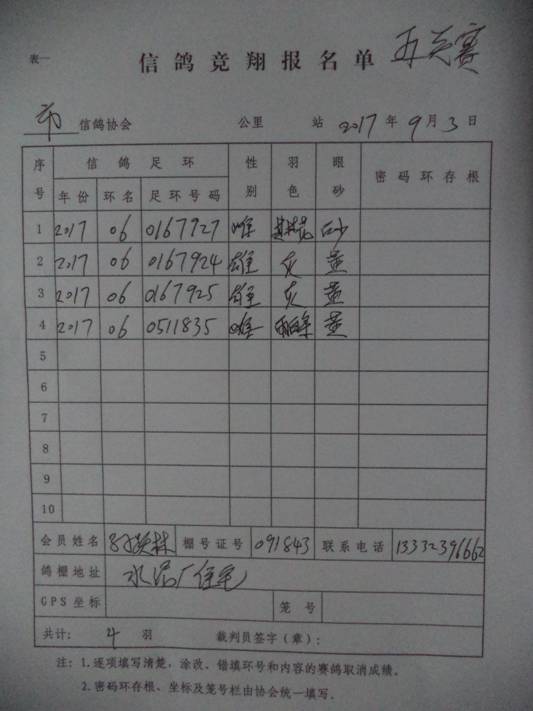 表一
信鸽竞翔报名单 五关赛
市 信鸽协会 公里 站 2017 年 9 月 3 日
序号 信鸽足环 性别 羽色 眼砂 密码环存根
年份 环名 足环号码
1 2017 06 0167927 雌 砂
2 2017 06 0167924 雄 灰 黄
3 2017 06 0167925 雄 灰 黄
4 2017 06 0511835 雌 黄
5
6
7
8
9
10
会员姓名 林 棚号证号 091843 联系电话 13332396662
鸽棚地址 水泥厂住宅
GPS坐标 笼号
共计: 4 羽 裁判员签字(章):
注: 1.逐项填写清楚,涂改、错填环号和内容的赛鸽取消成绩。
2.密码环存根、坐标及笼号栏由协会统一填写。